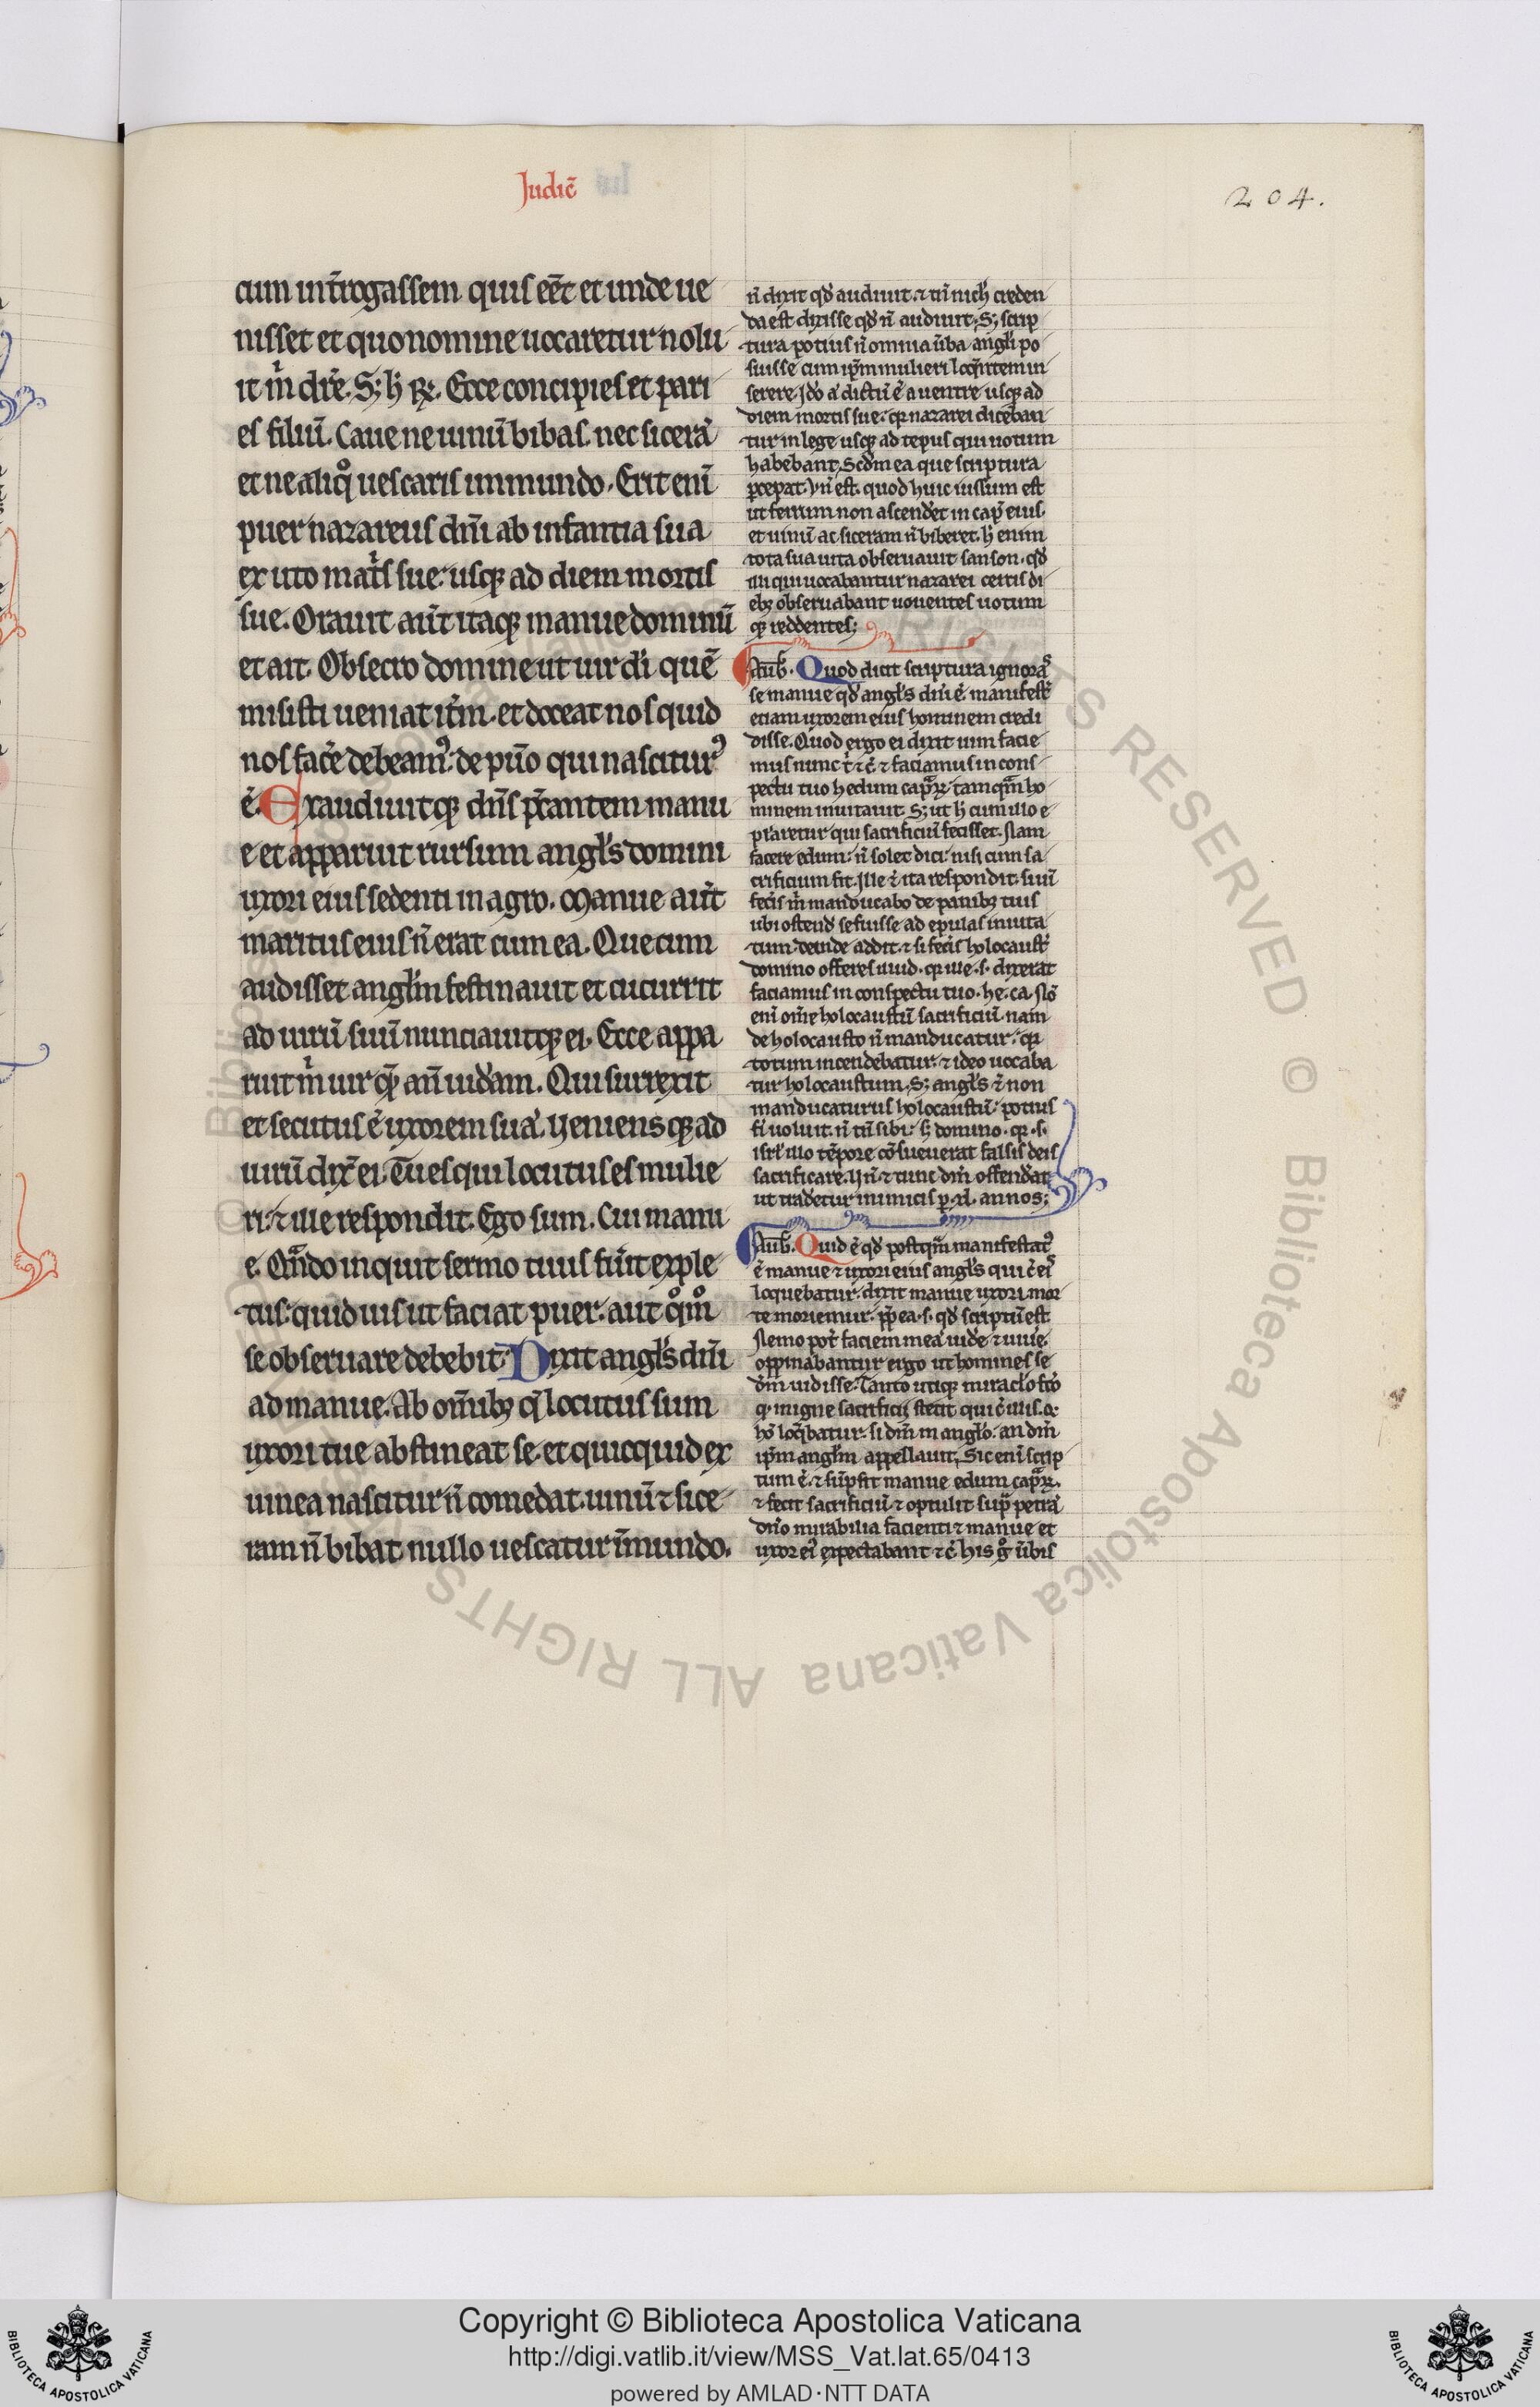 Judic̄
204.
cum int̄rogassem quis eēt et unde ue
nisset et quo nomine uocaretur nolu
it m̄ dic̄e. S; h̄ Rx. Ecce concipies et pari
es filiū. Caue ne uinū bibas. nec sicerā
et ne aliq̊ uescaris inmundo. Erit enī
puer nazareus dn̄i ab infantia sua
ex utō mat̄s sue. usq; ad diem mortis
sue. Orauit aūt itaq; manue dominū
et ait. Obsecro domine ut uir dī quē
misisti ueniat it̄m. et doceat nos quid
nos facē debeamꝰ. de pūo qui nasciturꝰ
ē. Exaudiuitq; dn̄s p̄cantem manu
e et apparuit rursum angl̄s domini
uxori eius sedenti in agro. Manue aūt
maritus eius n̄ erat cum ea. Que cum
audisset angl̄m festinauit et cucurrit
ad uirū suū nunciauitq; ei. Ecce appa
ruit m̄ uir quē an̄ uid̄am. Qui surrexit
et secutus ē uxorem suā. Ueniensq; ad
uirū dix̄ ei. Tu es qui locutus es mulie
ri. ⁊ ille respondit. Ego sum. Cui manu
e. Qn̄do inquit sermo tuus fūit exple
tus. quid uis ut faciat puer. aut q̊ m̊
se obseruare debebit. Dixit angl̄s dn̄i
ad manue. Ab om̄ib; q̄ locutus sum
uxori tue abstineat se. et quicquid ex
uinea nascitur n̄ comedat. uinū ⁊ sice
ram n̄ bibat nullo uescatur īmundo.
n̄ dixit qd̄ audiuit. ⁊ tn̄ nich̄ creden
da est dixisse qd̄ n̄ audiuit. S; scrip
tura potius n̄ omnia ūba angl̄i po
suisse cum ip̄m mulieri loq̄ntem in
serere. Jdō ā dictū ē a uentre usq; ad
diem mortis sue. qr nazarei diceban
tur in lege usq; ad tēpus qui uotum
habebant. Scdm̄ ea que scriptura
p̄cepat. Vn̄ est. quod huic iussum est
ut ferrum non ascend̄et in cap̄ eius.
et uinū ac siceram n̄ biberet. h̄ enim
tota sua uita obseruauit sanson. qd̄
illi qui uocabantur nazarei certis di
eb; obseruabant uouentes uotum
q; reddentes;
Aub̄. Quod dicit scriptura ignorasꝰ
se manue qd̄ angl̄s dn̄i ē. manifestꝰ
etiam uxorem eius hominem credi
disse. Quod ergo ei dixit uim facie
mus nunc t̄ ⁊ c̄ ⁊ faciamus in cons
pectu tuo hedum cap̄rꝝ. tamqm̄ ho
minem inuitauit. S; ut h̄ cum illo e
pl̄aretur qui sacrificiū fecisset. Nam
facere edum. n̄ solet dici. nisi cum sa
crificium fit. Jlle ē ita respondit. si uī
fec̄is m̄ manducabo de panib; tuis
ubi ostend̄ se fuisse ad epulas inuita
tum. deinde addit. ⁊ si fec̄is holocaustꝰ
domino offeres illud. qr ille .s. dixerat
faciamus in conspectu tuo. he. ca. Nō
enī om̄e holocaustū sacrificiū. nam
de holocausto n̄ manducatur. qr
totum incendebatur. ⁊ ideo uocaba
tur holocaustum. S; angl̄s ē non
manducaturus holocaustū. potius
fī uoluit. n̄ tn̄ sibi. h̄ domino. qr .s.
isrl̄ illo tēpore cōsueuerat falsis deis
sacrificare. Un̄ ⁊ tunc dn̄m offend̄at
ut tradetur inimicis p̄ xl. annos;
Aub̄. Quid ē qd̄ postqm̄ manifestatꝰ
ē manue ⁊ uxori eius angl̄s qui c̄ eisꝰ
loquebatur. dixit manue uxori mor
te moriemur. pp̄ ea .s. qd̄ scriptū est
Nemo pot̄ faciem meā uide ⁊ uiue.
oppinabantur ergo ut homines se
dm̄ uidisse. Tanto utiq; miracl̄o fc̄o
q. in igne sacrificii stetit qui c̄ illis. q.
hō loq̄batur. si dn̄m in angl̄o. an dn̄m
ip̄m angl̄m appellauit. Sic enī scrip
tum ē. ⁊ sūpsit manue edum cap̄rꝝ.
⁊ fecit sacrificiū ⁊ optulit sup̄ petrā
dn̄o mirabilia facienti ⁊ manue et
uxor eiꝰ expectabant ⁊ c̄. his g̊ ūbis
Copyright © Biblioteca Apostolica Vaticana
http://digi.vatlib.it/view/MSS_Vat.lat.65/0413
powered by AMLAD·NTT DATA
BIBLIOTECA APOSTOLICA VATICANA
BIBLIOTECA APOSTOLICA VATICANA
© Biblioteca Apostolica Vaticana ALL RIGHTS RESERVED